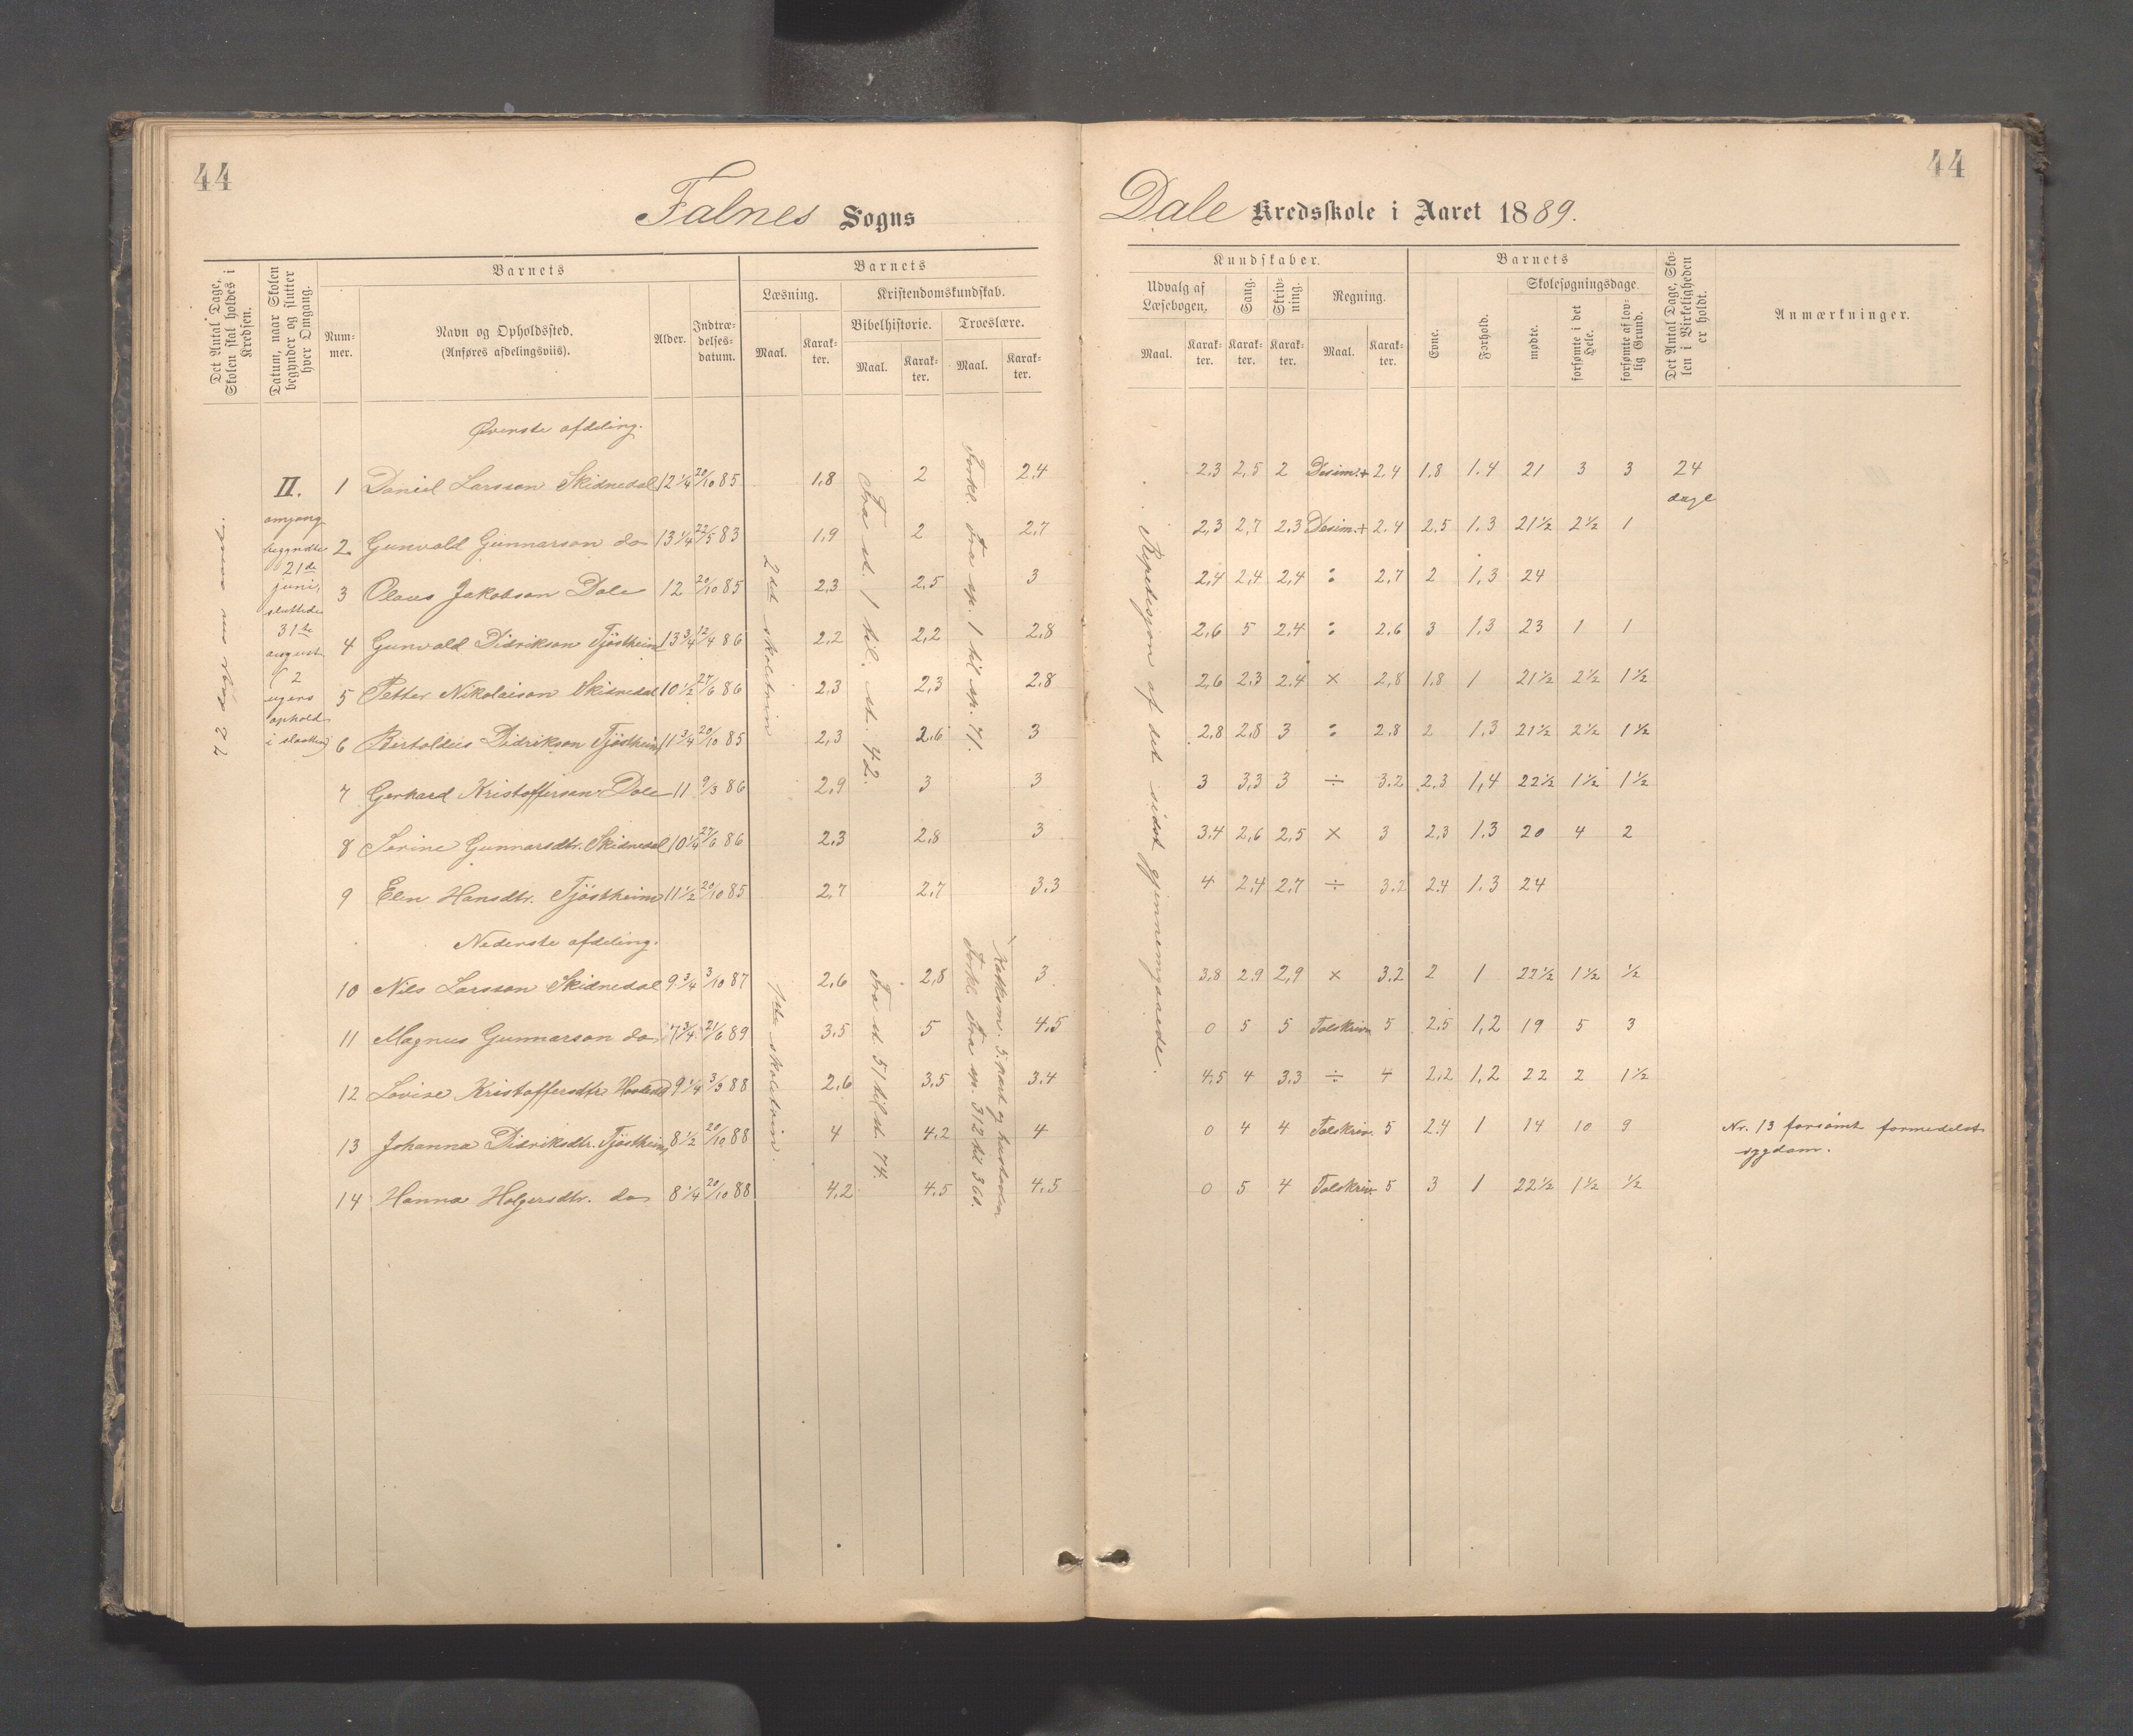 44
44
Falnes Sogns
Dale Kredsskole i Aaret 1889.
Det Antal Dage, Skolen skal holdes i Kredsen.
Datum, naar Skolen begynder og slutter hver Omgang.
Barnets
Num-mer.
Navn og Opholdssted.
(Anføres afdelingsviis).
Alder.
Indtræ-delses-datum.
Barnets
Læsning.
Maal.
Karak-ter.
Kristendomskundskab.
Bibelhistorie.
Maal.
Karak-ter.
Troeslære.
Maal.
Karak-ter.
Kundskaber.
Udvalg af Læsebogen.
Maal.
Karak-ter.
Sang.
Karak-ter.
Skriv-ning.
Karak-ter.
Regning.
Maal.
Karak-ter.
Barnets
Evne.
Forhold.
Skolesøgningsdage
mødte.
forsømte i det Hele.
forsømte af lov-lig Grund.
Det Antal Dage, Sko-len i Virkeligheden er holdt.
Anmærkninger.
72 dage om aaret.
II. omgang begyndte 21de juni, sluttede 31te august (2 ugers ophold i slaatten)
2det skoletrin
Fra st. 1 til st. 42.
Forkl. Fra sp. 1 til sp. 71.
Repetisjon af det sidst gjennemgaaede.
Øverste afdeling.
1 Daniel Larsson Skidnedal 12 1/4 20/10 85 1,8 2 2,4 2,3 2,5 2 Desim.+ 2,4 1,8 1.4 21 3 3 24 dage
2 Gunvald Gunnarson do 13 1/4 22/5 83 1,9 2 2,7 2,3 2,7 2.3 Desim.+ 2.4 2.5 1.3 21 1/2 2 1/2 1
3 Olaus Jakobson Dale 12 20/10 85 2,3 2,5 3 2,4 2,4 2,4 : 2,7 2 1,3 24
4 Gunvald Didrikson Tjöstheim 13 3/4 12/4 86 2,2 2,2 2,8 2,6 5 2.4 : 2.6 3 1.3 23 1 1
5 Petter Nikolaison Skidnedal 10 1/2 27/6 86 2,3 2,3 2.8 2,6 2.3 2.4 × 2,8 1.8 1 21 1/2 2 1/2 1 1/2
6 Bertoldus Didrikson Tjöstheim 11 3/4 20/10 85 2,3 2.6 3 2.8 2,8 3 : 2.8 2 1.3 21 1/2 2 1/2 1 1/2
7 Gerhard Kristofferson Dale 11 9/3 86 2,9 3 3 3 3,3 3 ÷ 3.2 2.3 1,4 22 1/2 1 1/2 1 1/2
8 Serine Gunnarsdtr. Skidnedal 10 1/4 27/6 86 2,3 2,8 3 3.4 2,6 2,5 × 3 2,3 1.3 20 4 2
9 Elen Hansdtr. Tjöstheim 11 1/2 20/10 85 2,7 2,7 3.3 4 2,4 2,7 ÷ 3.2 2.4 1.3 24
Nederste afdeling.
1ste skoletrin.
Fra st. 51 til st. 74.
Forkl. Fra sp. 312 til 368.
10 Nils Larsson Skidnedal 9 3/4 3/10 87 2,6 2,8 3 3,8 2.9 2,9 × 3.2 2 1 22 1/2 1 1/2 1/2
11 Magnus Gunnarson do 7 3/4 21/6 89 3.5 5 4.5 0 5 5 Talskrivn 5 2.5 1,2 19 5 3
12 Lovise Kristoffersdtr 9 1/4 3/3 88 2,6 3,5 3.4 4,5 4 3.3 ÷ 4 2,2 1,2 22 2 1 1/2
13 Johanna Didriksdtr. Tjöstheim 8 1/2 20/10 88 4 4.2 4 0 4 4 Talskriv. 5 2.4 1 14 10 9 Nr. 13 forsömt formedelst sygdom.
14 Hanna Holgersdtr. do 8 1/4 20/10 88 4,2 4.5 4,5 0 5 4 Talskriv 5 3 1 22 1/2 1 1/2 1/2